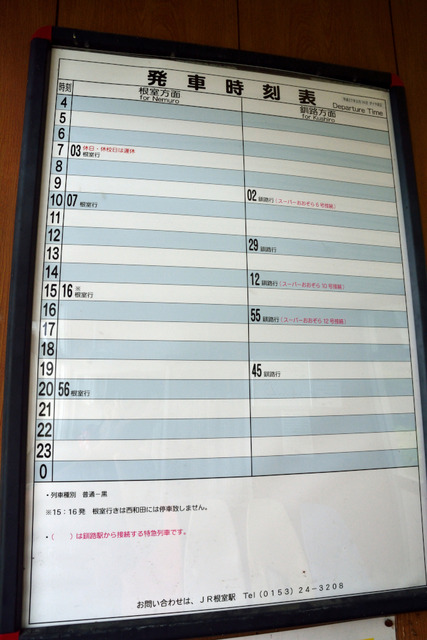 発車時刻表
Departure Time
時刻 根室方面 for Nemuro 釧路方面 for Kushiro
4
5
6
7 03 休日・休校日は運休 根室行
8
9
10 07 根室行 02 釧路行(スーパーおおぞら6号接続)
11
12
13 29 釧路行
14 12 釧路行(スーパーおおぞら10号接続)
15 16 ※ 根室行
16 55 釧路行(スーパーおおぞら12号接続)
17
18
19 45 釧路行
20 56 根室行
21
22
23
0
・列車種別 普通ー黒
※15:16発 根室行きは西和田には停車致しません。
・( )は釧路駅から接続する特急列車です。
お問い合わせは、JR根室駅 Tel(0153)24-3208